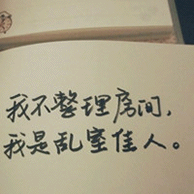 我不整理房间,
我是乱室佳人。